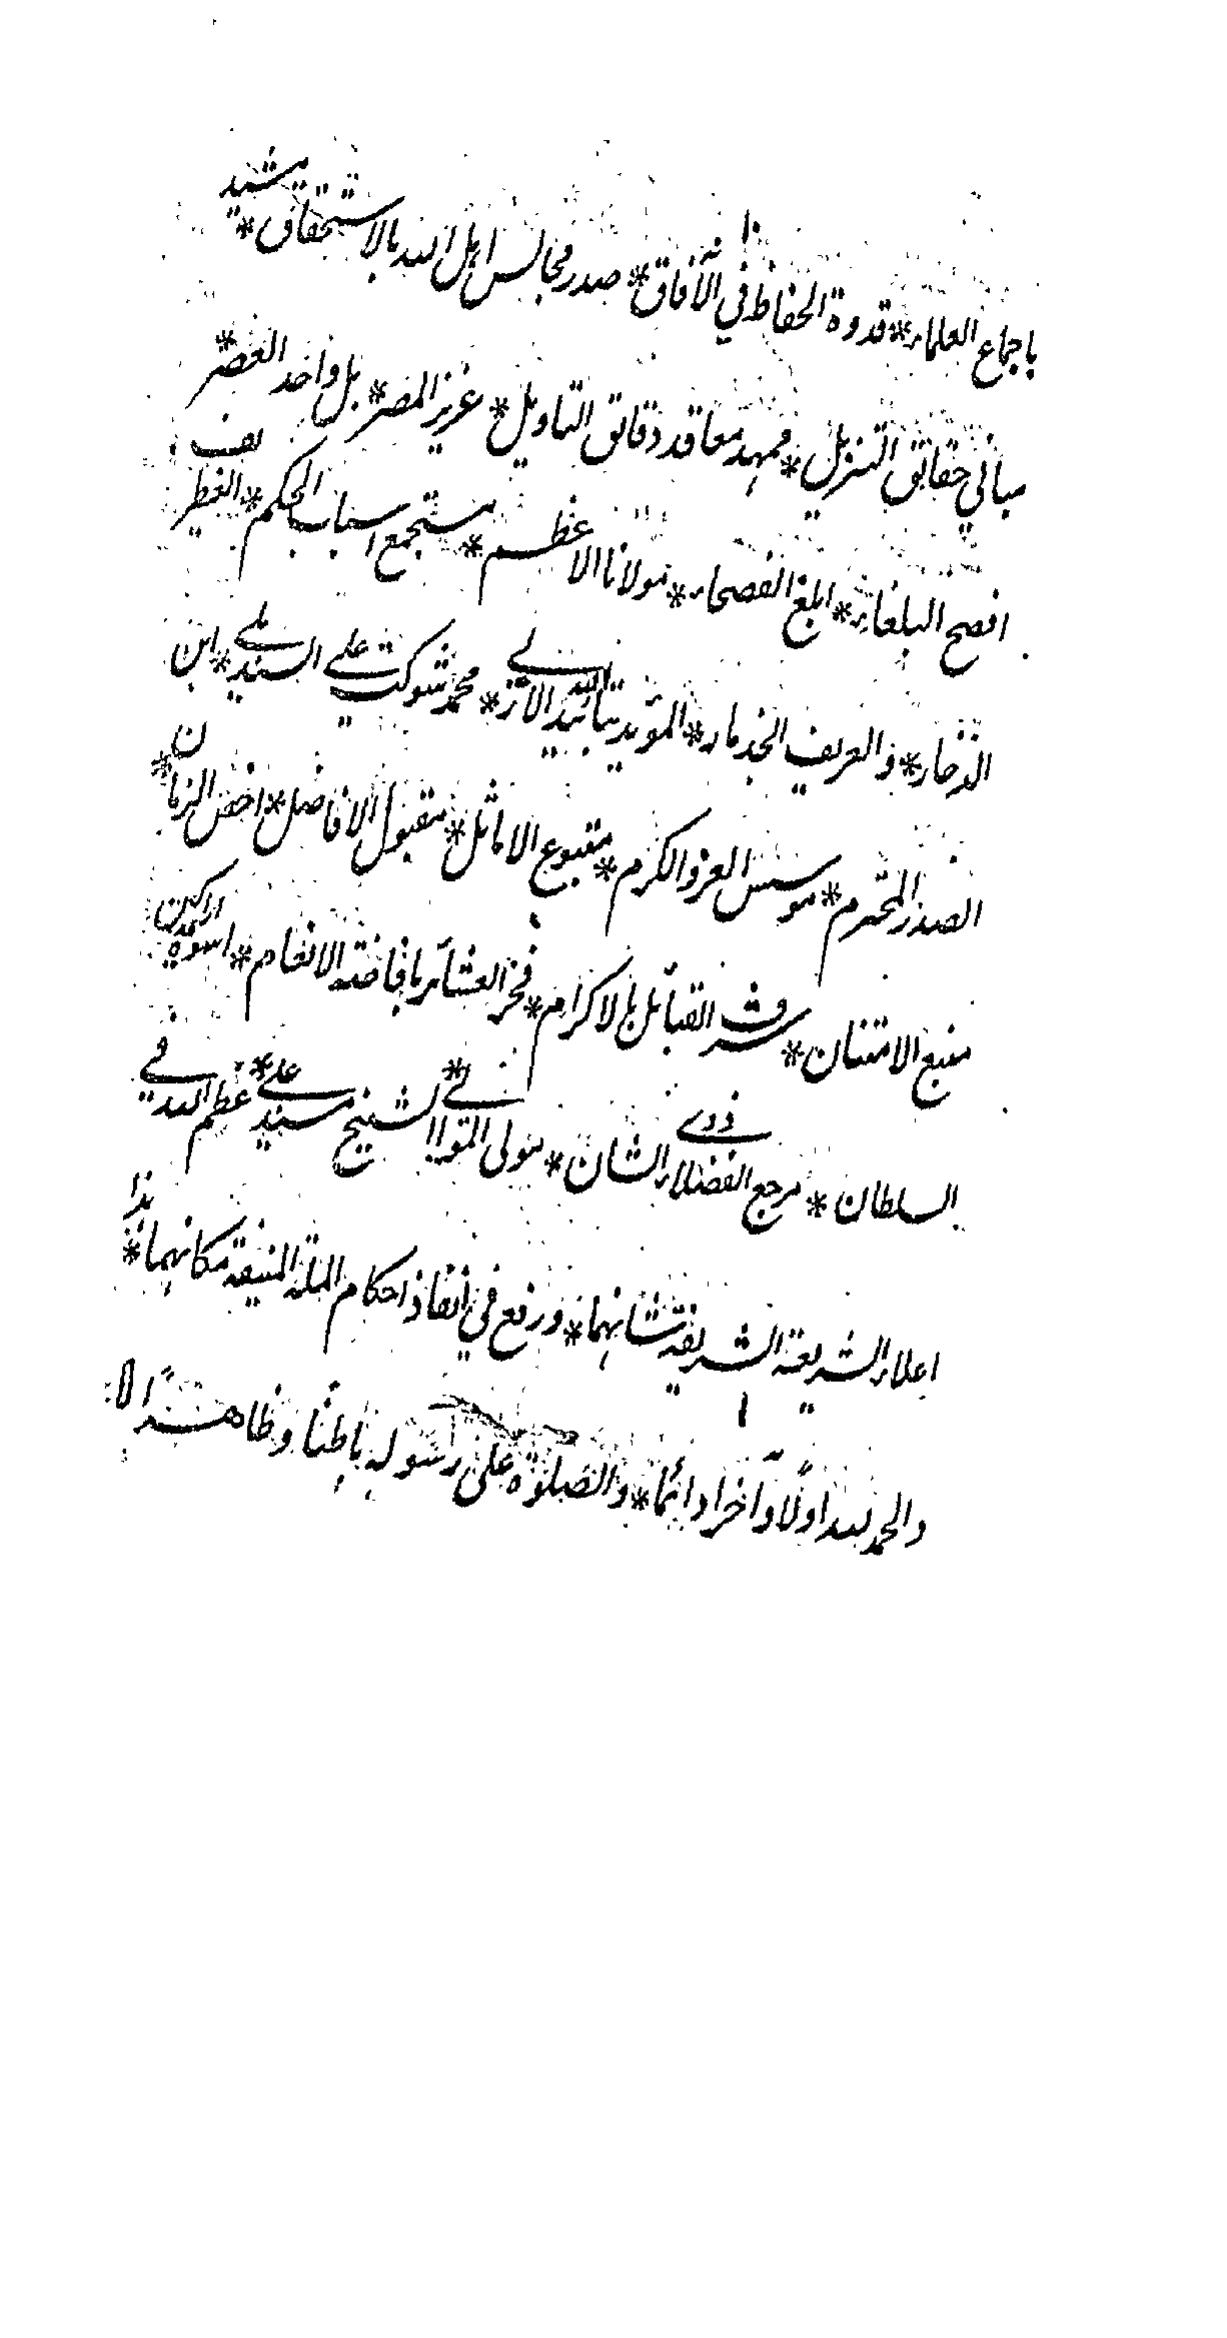 باجماع العلماء * قدوة الحفاظ في الآفاق * صدر مجالس اهل الله بالاستحقاق * مشيد
مباني حقائق التنزيل * ممهد معاقد دقائق التاويل * عزيز المصر * بل واحد العصر *
افصح البلغاء * ابلغ الفصحاء * مولانا الاعظم * مستجمع اسباب الحكم * الغطريف
الذخار * والعريف * المؤيد بتائيد الله * محمد شوكت علي السنديلي * ابن
الصدر المحترم * موسس العز والكرم * متبوع الاماثل * مقبول الافاضل * اخص الزمان *
منبع الامتنان * شرف القبائل بالاكرام * فخر العشائر بافاضة الانعام * اسوة اراكين
السلطان * مرجع الفضلاء ذوي الشان * مولى الموالي * الشيخ مسيد علي * عظم الله في
اعلاء الشريعة الشريفة شانهما * ورفع في انفاذ احكام الملة المنيفة مكانهما * هذا
والحمد لله اولا وآخرا دائما * والصلوة على رسوله باطنا وظاهرا الا